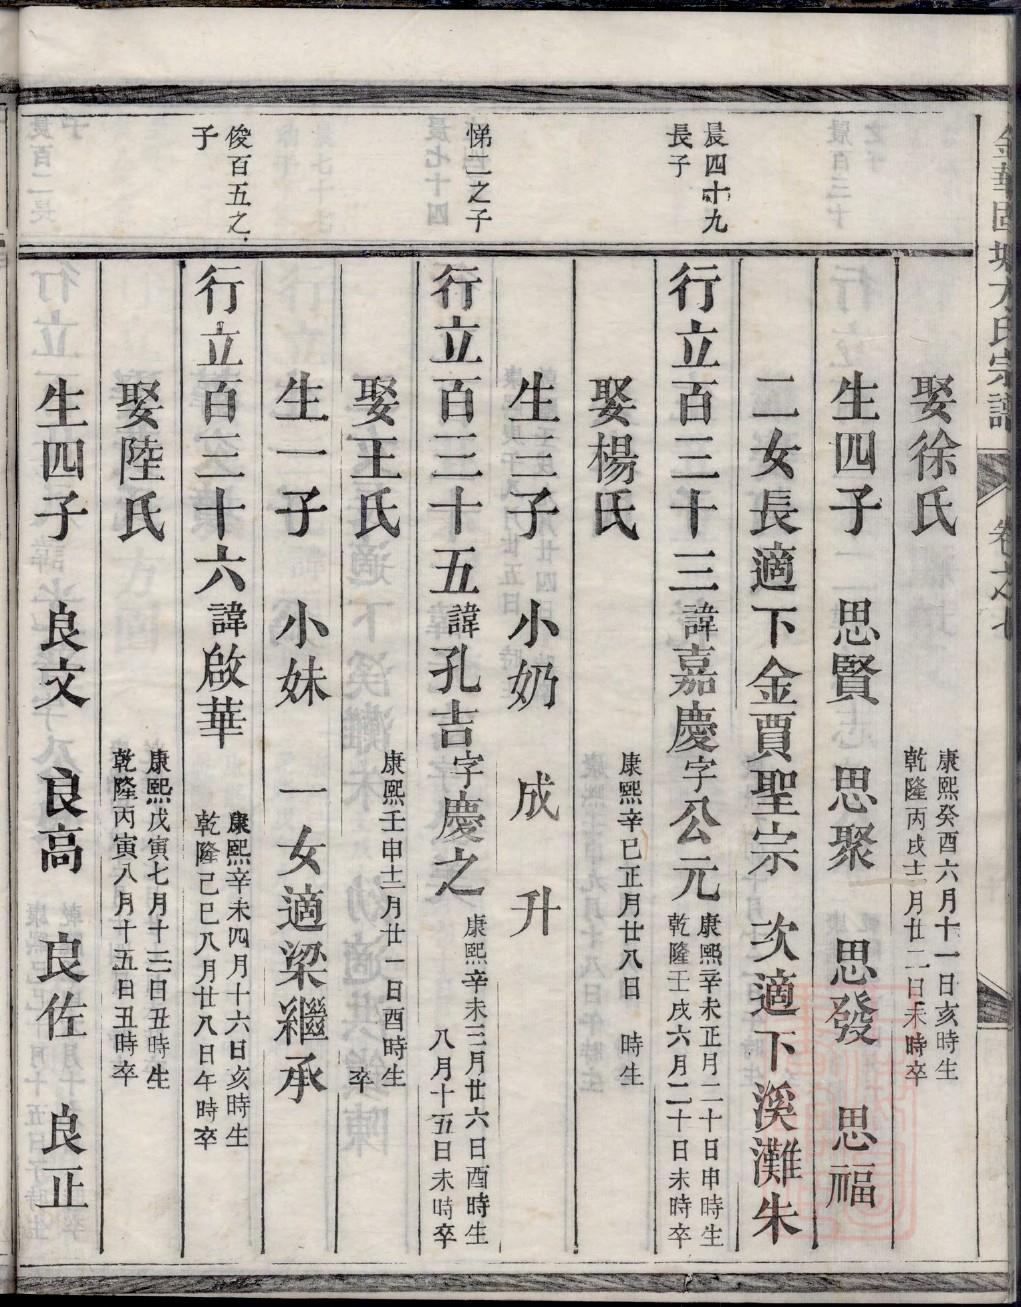 金華固塘方氏宗譜 卷之七
娶徐氏 康熙癸酉六月十一日亥時生 乾隆丙戌十二月廿二日未時卒
生四子 思賢 思聚 思發 思福
二女長適下金賈聖宗 次適下溪灘朱
晨四十九長子
行立百三十三諱嘉慶字公元 康熙辛未正月二十日申時生 乾隆壬戌六月二十日未時卒
娶楊氏 康熙辛巳正月廿八日 時生
生三子 小奶 成 升
悌二之子
行立百三十五諱孔吉字慶之 康熙辛未三月廿六日酉時生 八月十五日未時卒
娶王氏 康熙壬申十二月廿一日酉時生 卒
生一子 小妹 一女適梁繼承
俊百五之子
行立百三十六諱啟華 康熙辛未四月十六日亥時生 乾隆己巳八月廿八日午時卒
娶陸氏 康熙戊寅七月十三日丑時生 乾隆丙寅八月十五日丑時卒
生四子 良文 良高 良佐 良正